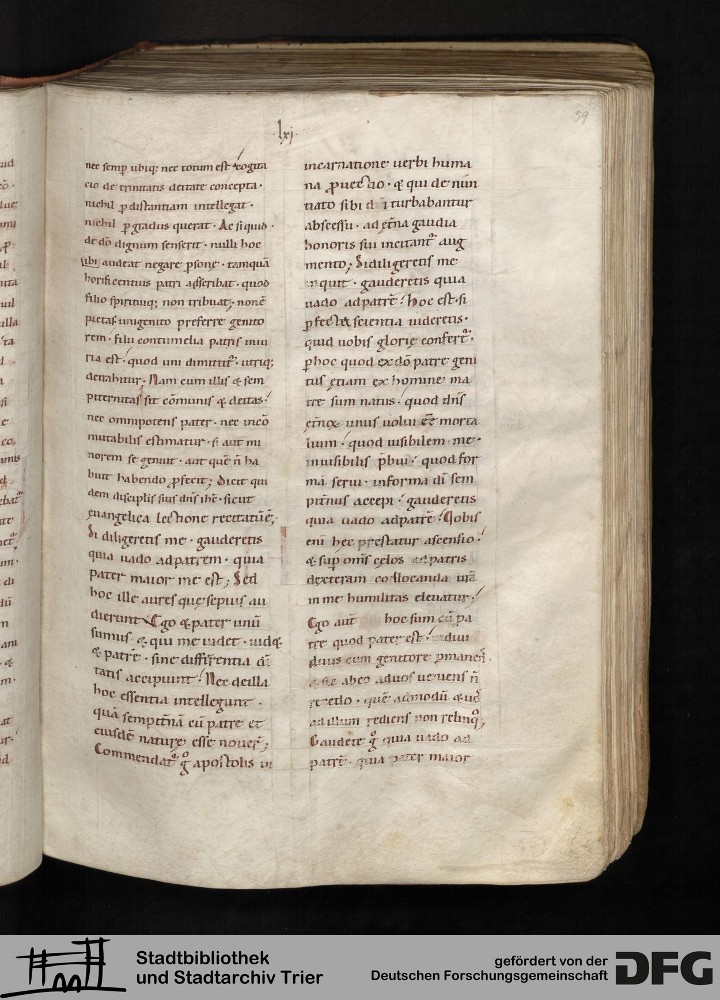 lxi
59
nec semp ubiq; nec totum est cogita
cio de trinitatis deitate concepta·
niehil p distantiam intellegat·
niehil p gradus querat· Ac si quid
de dō dignum senserit· nulli hoc
ibi audeat negare psone· tamquā
horificentius patri asscribat· quod
filio spirituiq; non tribuat; nonē
pietaſ unigenito preferre genito
rem· filii contumelia patris iniu
ria est· quod uni dimittit· utriq;
detrahitur· Nam cum illis & sem
piternitas sit cōmunis & deitas·
nec omnipotens pater· nec incō
mutabilis estimatur· si aut mi
norem se genuit· aut quē ñ ha
buit habendo pfecit; Dicit qui
dem discipulis suis dñs ihc· sicut
euangelica lectione recitatū ē;
Si diligeretis me· gauderetis
quia uado ad patrem· quia
Pater maior me est; Sed
hoc ille aures que sepius au
dierunt Ego & pater unū
sumus· & qui me uidet· uid&
& patrē· sine differentia dī
tatis accipiunt· Nec de illa
hoc essentia intellegunt·
quā sempitnā cū patre et
eiusdē nature esse nouer̄;
Commendat g̊ apostolis in
incarnatione uerbi huma
na puectio· & qui de nun
tiato sibi dī turbabantur
abscessu· ad etna gaudia
honoris sui incitant aug
mento; Si diligeretis me
inquit· gauderetis quia
uado ad patrē· hoc est· si
pfecta scientia uideretis·
quid uobis glorie confert·
p hoc quod ex dō patre geni
tus etiam ex homine ma
tre sum natus· quod dñs
etnox unus uolui ēē morta
lium· quod uisibilem me·
inuisibilis pbui· quod for
mā serui· in forma di sem
pitnus accepi· gauderetis
quia uado ad patrē· Uobis
enī hec prestatur ascensio·
& sup omīs celos ad patris
dexteram collocanda urā
in me humilitas eleuatur·
Ego aut hoc sum cū pa
tre quod pater est· indiui
duus cum genitore pmaneo·
sic ab eo ad uos ueniens ñ
recedo· quē admodū & uos
ad illum rediens non relinq;
Gaudete g̊ quia uado ad
patrē· quia pater maior
Stadtbibliothek
und Stadtarchiv Trier
gefördert von der
Deutschen Forschungsgemeinschaft
DFG